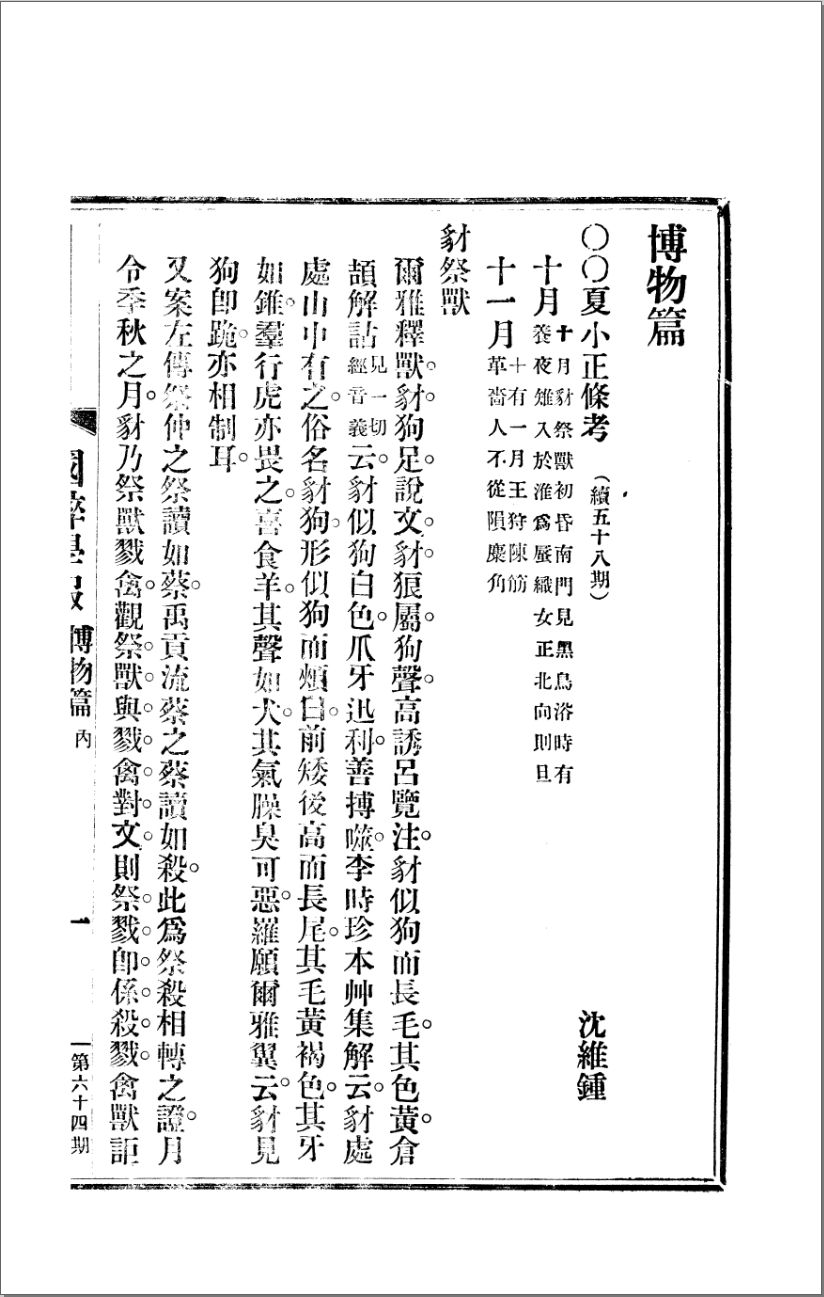 博物篇
○○夏小正條考（續五十八期） 沈維鍾
十月 十月豺祭獸初昏南門見黑鳥浴時有
養夜雉入於淮爲蜃織女正北向則旦
十一月 十有一月王狩陳筋
革嗇人不從隕麋角
豺祭獸
爾雅釋獸。豺狗足。說文。豺狼屬。狗聲。高誘呂覽注。豺似狗而長毛。其色黃。倉
頡解詁見一切經音義云。豺似狗白色。爪牙迅利。善搏噬。李時珍本艸集解云。豺處
處山中有之。俗名豺狗。形似狗而頰白。前矮後高而長尾。其毛黃褐色。其牙
如錐。羣行虎亦畏之。喜食羊。其聲如犬。其氣臊臭可惡。羅願爾雅翼云。豺見
狗卽跪。亦相制耳。
又案左傳祭仲之祭讀如蔡。禹貢流蔡之蔡讀如殺。此爲祭殺相轉之證。月
令季秋之月。豺乃祭獸戮禽。觀祭。獸。與。戮。禽。對。文。則祭。戮。卽。係。殺。戮。禽獸詎
國粹學報 博物篇 內 一 第六十四期